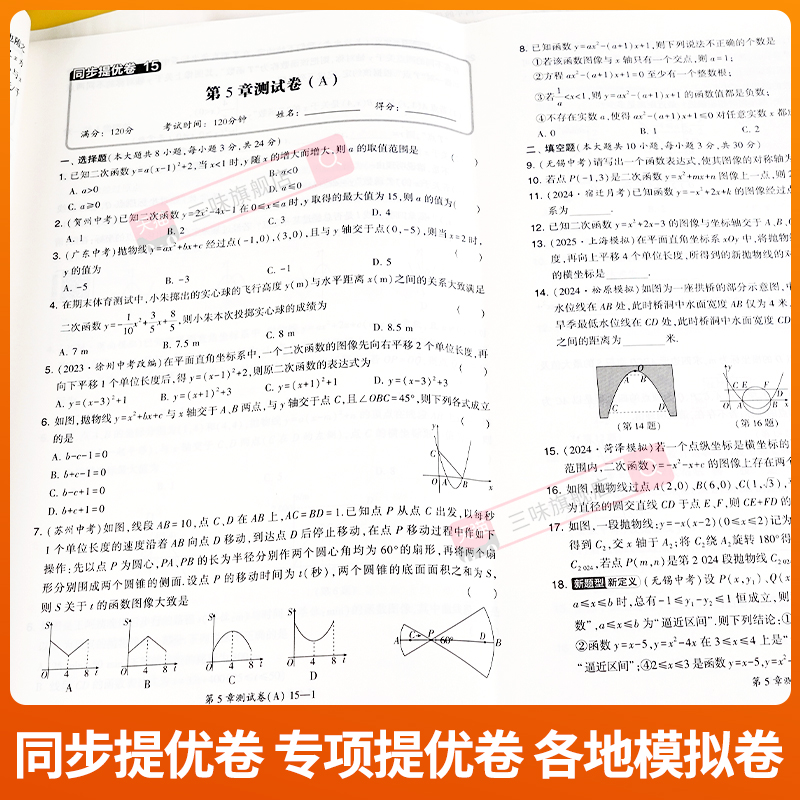 同步提优卷 15
第5章测试卷(A)
满分:120分 考试时间:120分钟 姓名: 得分:
一、选择题(本大题共8小题,每小题3分,共24分)
1. 已知二次函数 y=a(x-1)²+2,当x<1时,y随x的增大而增大,则a的取值范围是 ( )
A. a>0 B. a<0
C. a≥0 D. a≤0
2. (贺州中考)已知二次函数 y=2x²-4x-1 在 0≤x≤a时,y取得的最大值为15,则a的值为( )
A. 1 B. 2 C. 3 D. 4
3. (广东中考)抛物线 y=ax²+bx+c 经过点(-1,0),(3,0),且与y轴交于点(0,-5),则当x=2时,
y的值为 ( )
A. -5 B. -3 C. -1 D. 5
4. 在期末体育测试中,小朱掷出的实心球的飞行高度y(m)与水平距离x(m)之间的关系大致满足
二次函数 y=-1/10x²+3/5x+8/5,则小朱本次投掷实心球的成绩为 ( )
A. 7 m B. 7.5 m C. 8 m D. 8.5 m
5. (2023·徐州中考改编)在平面直角坐标系中,一个二次函数的图像先向右平移2个单位长度,再
向下平移1个单位长度后,得 y=(x-1)²+2,则原二次函数的表达式为 ( )
A. y=(x-3)²+1 B. y=(x+1)²+3 C. y=(x+1)²+1 D. y=(x-3)²+3
6. 如图,抛物线 y=x²+bx+c 与x轴交于A,B两点,与y轴交于点C,且∠OBC=45°,则下列各式成立
的是 ( )
A. b-c-1=0
B. b+c-1=0
C. b-c+1=0
D. b+c+1=0
y C O A B x
7. (苏州中考)如图,线段AB=10,点C,D在AB上,AC=BD=1.已知点P从点C出发,以每秒
1个单位长度的速度沿着AB向点D移动,到达点D后停止移动,在点P移动过程中作如下
操作:先以点P为圆心,PA,PB的长为半径分别作两个圆心角均为60°的扇形,再将两个扇
形分别围成两个圆锥的侧面.设点P的移动时间为t(秒),两个圆锥的底面面积之和为S,
则S关于t的函数图像大致是 ( )
S O 4 8 t A
S O 4 8 t B
S O 4 8 t C
S O 4 8 t D
A C P 60° D B
第5章测试卷(A) 15—1
8. 已知函数 y=ax²-(a+1)x+1,则下列说法不正确的个数是
①若该函数图像与x轴只有一个交点,则a=1;
②方程 ax²-(a+1)x+1=0 至少有一个整数根;
③若1/a<x<1,则 y=ax²-(a+1)x+1 的函数值都是负数;
④不存在实数a,使得 ax²-(a+1)x+1≤0 对任意实数x都
A. 0 B. 1 C. 2
二、填空题(本大题共10小题,每小题3分,共30分)
9. (无锡中考)请写出一个函数表达式,使其图像的对称轴为
10. 若点P(-1,3)是二次函数 y=x²+mx+n 图像上一点,则
11. (2024·宿迁月考)已知函数 y=-x²+2x+k 的图像经过点
系为 .
12. 已知二次函数 y=x²+2x-3 的图像与坐标轴交于A,B,
13. (2025·上海模拟)在平面直角坐标系xOy中,将抛物
度,再向上平移4个单位长度,所得到的新抛物线的
的横坐标是 .
14. (2024·松原模拟)如图为一座拱桥的部分示意图,
水位线在AB处,此时桥洞中水面宽度AB仅为4米,
旱季最低水位线在CD处,此时桥洞中水面宽度CD
之间的距离为 米.
O A B C D
(第14题)
y C E F D O A B x
(第16题)
15. (2024·菏泽模拟)若一个点纵坐标是横坐标的
范围内,二次函数 y=-x²-x+c 的图像上存在两个
16. 如图,抛物线过点A(2,0),B(6,0),C(1,√3),
为直径的圆交直线CD于点E,F,则CE+FD的
17. 如图,一段抛物线:y=-x(x-2)(0≤x≤2)记为
得到C₂,交x轴于A₂;将C₂绕A₂旋转180°得
C₂₀₂₄,若点P(m,n)是第2024段抛物线C₂₀₂
18. 新题型 新定义 (无锡中考)设P(x,y₁),Q(x
a≤x≤b时,总有-1≤y₁-y₂≤1恒成立,则
数”,a≤x≤b为“逼近区间”.则下列结论:①
②函数 y=x-5,y=x²-4x 在 3≤x≤4 上是“
“逼近区间”;④2≤x≤3是函数 y=x-5,y=x²-
第5章
三味旗舰店
三味旗舰店
同步提优卷 专项提优卷 各地模拟卷